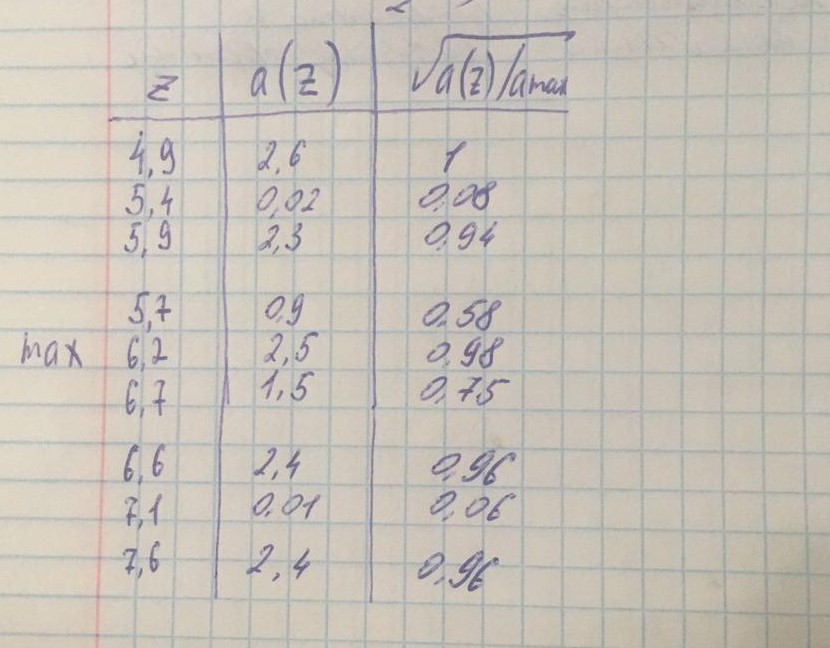 z a(z) √a(z)/amax
4,9 2,6 1
5,4 0,02 0,08
5,9 2,3 0,94
5,7 0,9 0,58
max 6,2 2,5 0,98
6,7 1,5 0,75
6,6 2,4 0,96
7,1 0,01 0,06
7,6 2,4 0,96